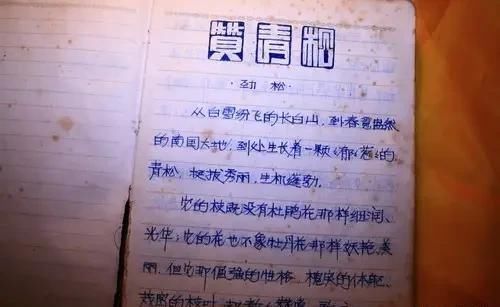 赞青松
·劲松·
从白雪纷飞的长白山，到春意盎然
的南国大地，到处生长着一颗々郁々葱々的
青松，挺拔秀丽，生机蓬勃。
它的枝既没有杜鹃花那样细润、
光华；它的花也不象牡丹花那样妖艳、美
丽。但它那倔强的性格、的体躯、
的枝叶